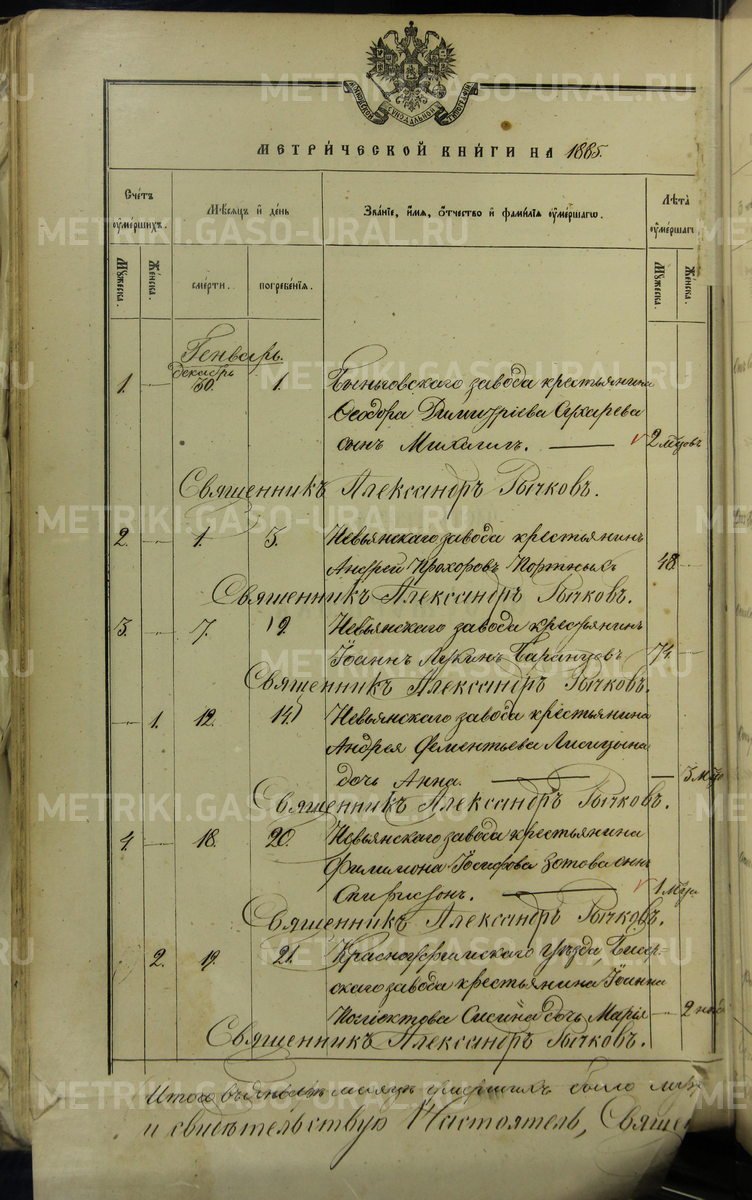 МЕТРИ́ЧЕСКОЙ КНИ́ГИ НА 1885.
Сче́тъ оу҆ме́ршихъ.
Мѣ́сяцъ и҆ де́нь
Зва́нїе, и҆́мя, ѻ҆́тчество и҆ фами́лїя оу҆ме́ршагѡ.
Лѣ́та оу҆ме́ршагѡ
Мꙋ́жеска. Же́нска. сме́рти. погребе́нїя. Мꙋ́жеска. Же́нска.
Генварь.
декабрь
1. — 30. 1. Быньговскаго завода крестьянина
Ѳеодора Димитріева Сухарева
сынъ Михаилъ. — 2 мѣсовъ
Священникъ Александръ Бычковъ.
2. — 1. 3. Невьянскаго завода крестьянинъ
Андрей Прохоровъ Портныхъ 48 —
Священникъ Александръ Бычковъ.
3. — 7. 9. Невьянскаго завода крестьянинъ
Іоаннъ Лукинъ 74 —
Священникъ Александръ Бычковъ.
— 1. 12. 14 Невьянскаго завода крестьянина
Андрея Лисицына
дочь Анна. — — 3 мѣс
Священникъ Александръ Бычковъ.
4. — 18. 20. Невьянскаго завода крестьянина
Филимона Іосифова Зотова сынъ
Спиридонъ. — 1 мѣся
Священникъ Александръ Бычковъ.
2. 19. 21. Красноуфимскаго уѣзда, Бисер-
скаго завода крестьянина Іоанна
дочь Марія — 2 нед
Священникъ Александръ Бычковъ.
Итого въ мѣсяцѣ умершихъ было
и свидѣтельствую Настоятель, Священ
METRIKI.GASO-URAL.RU